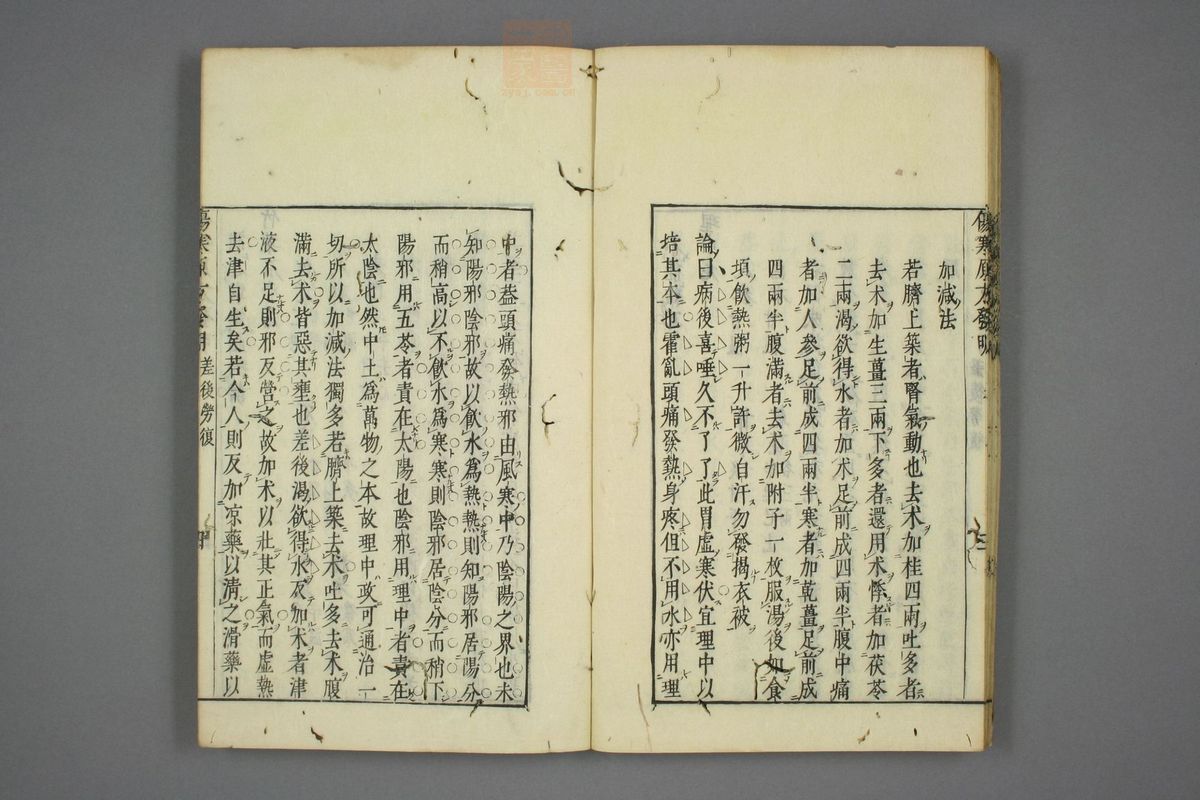 傷寒原方發明
加減法
若臍上築者腎氣動也去朮加桂四兩吐多者
去朮加生薑三兩下多者還用朮悸者加茯苓
二兩渴欲得水者加朮足前成四兩半腹中痛
者加人參足前成四兩半寒者加乾薑足前成
四兩半腹滿者去朮加附子一枚服湯後如食
頃飲熱粥一升許微自汗勿發揭衣被
論曰病後喜唾久不了了此胃虛寒伏宜理中以
培其本也霍亂頭痛發熱身疼但不用水亦用理
中者葢頭痛發熱邪由風寒中乃陰陽之界也未
知陽邪陰邪故以飲水爲熱熱則知陽邪居陽分
而稍高以不飲水爲寒寒則陰邪居陰分而稍下
陽邪用五苓者責在太陽也陰邪用理中者責在
太陰也然中土爲萬物之本故理中政可通治一
切所以加減法獨多若臍上築去朮吐多去朮腹
滿去朮皆惡其壅也差後渴欲得水反加朮者津
液不足則邪反營之故加朮以壯其正氣而虛熱
去津自生矣若今人則反加凉藥以清之滑藥以
傷寒原方發明 差後勞復
zysj.com.cn